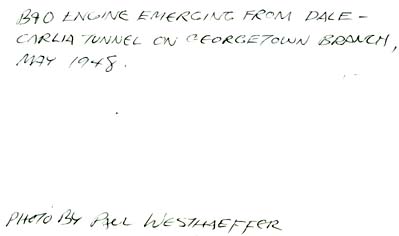 B&O ENGINE EMERGING FROM DALE-
CARLIA TUNNEL ON GEORGETOWN BRANCH,
MAY 1948.
PHOTO BY PAUL WESTHAEFFER